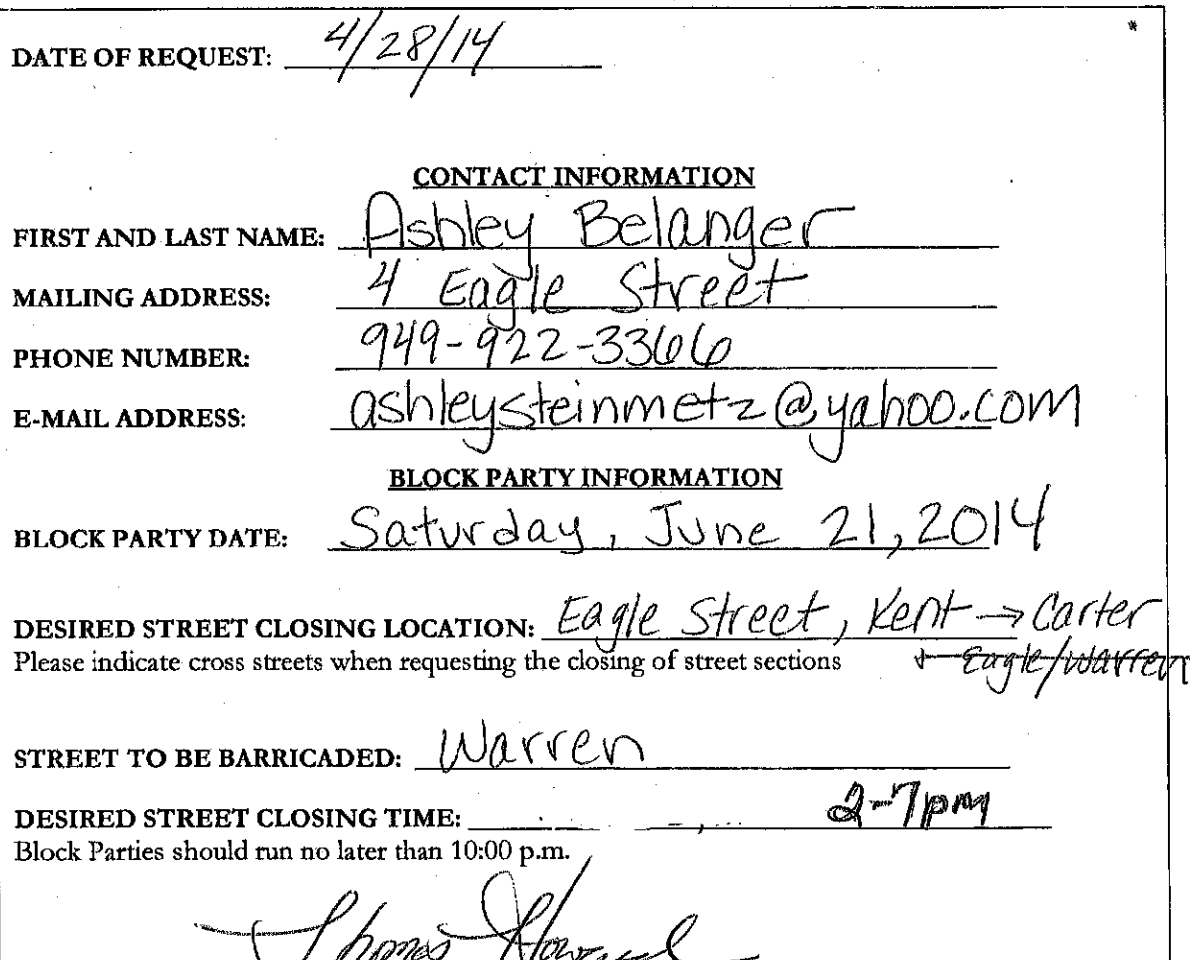 DATE OF REQUEST: 4/28/14
CONTACT INFORMATION
FIRST AND LAST NAME: Ashley Belanger
MAILING ADDRESS: 4 Eagle Street
PHONE NUMBER: 949-922-3366
E-MAIL ADDRESS: ashleysteinmetz@yahoo.com
BLOCK PARTY INFORMATION
BLOCK PARTY DATE: Saturday, June 21, 2014
DESIRED STREET CLOSING LOCATION: Eagle Street, Kent → Carter
Please indicate cross streets when requesting the closing of street sections + Eagle/Warren
STREET TO BE BARRICADED: Warren
DESIRED STREET CLOSING TIME: 2-7pm
Block Parties should run no later than 10:00 p.m.
Thomas